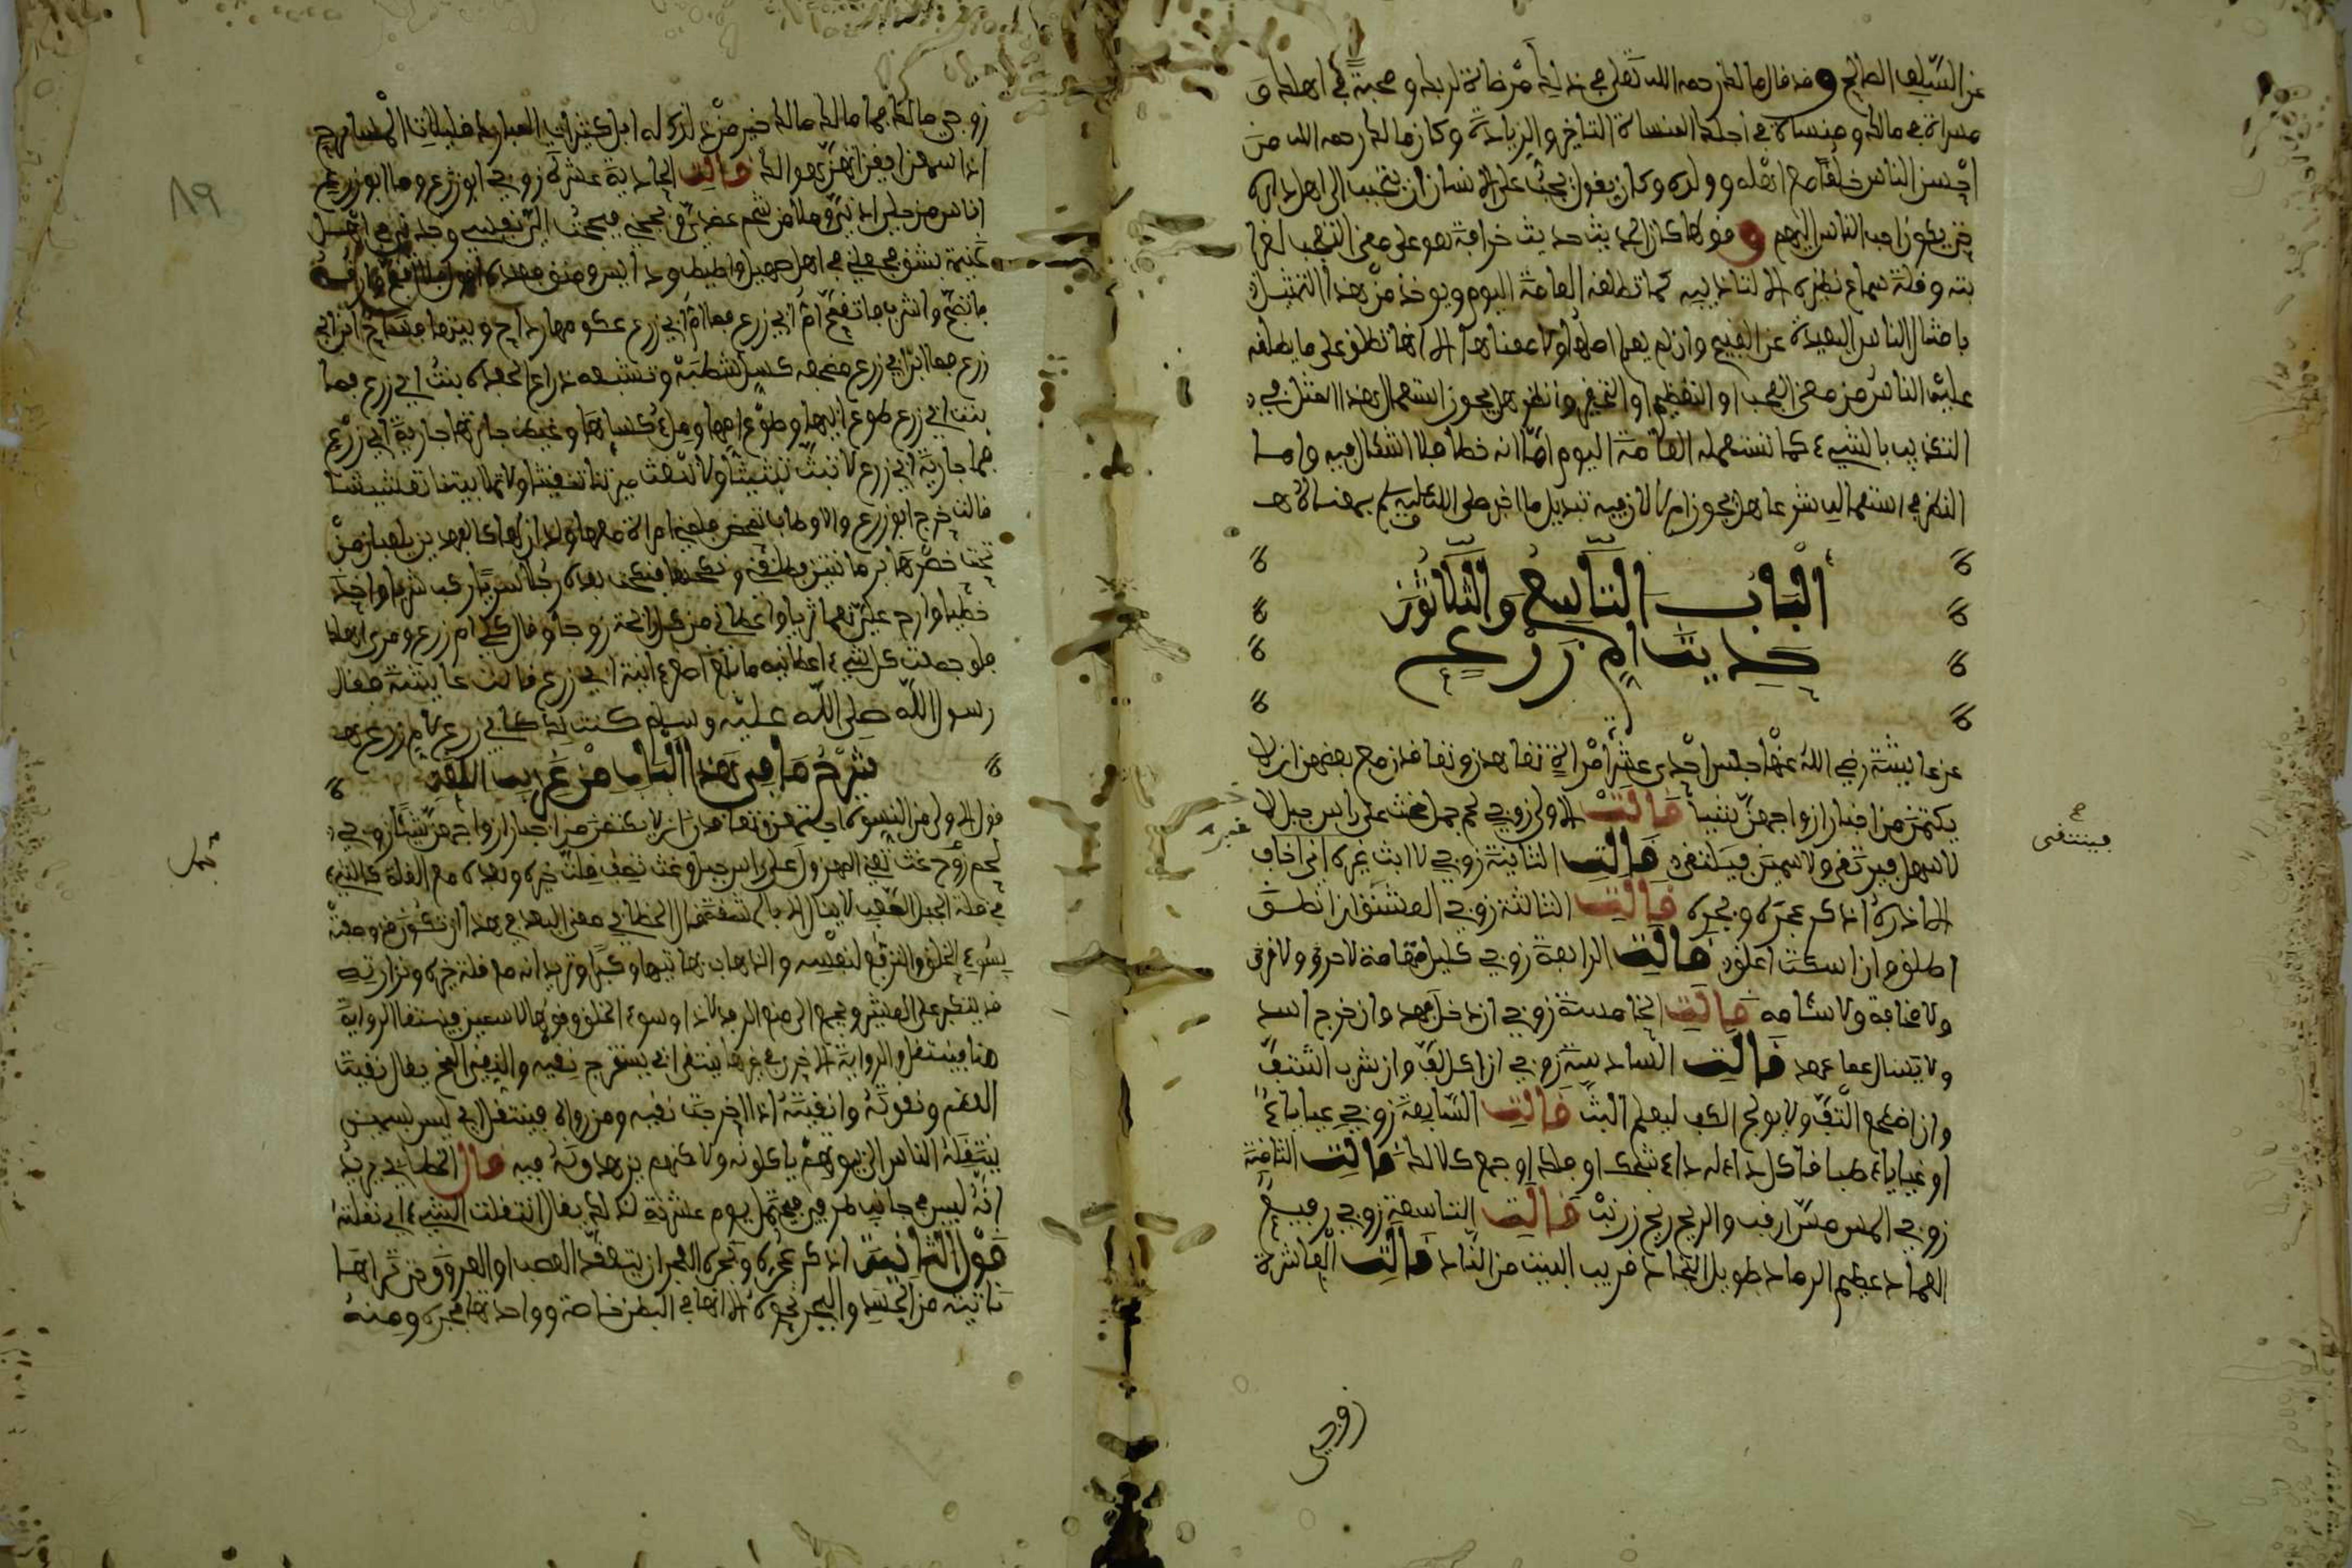 عن السلف الصالح وقد قال مالك رحمه الله تعلى في ذلك مرضاة لربك ومحبة في اهلك و
مثراة في مالك ومنساة في اجلك المنساة التاخير والزيادة وكان مالك رحمه الله من
احسن الناس خلقا مع اهله وولده وكان يقول يجب على الانسان ان يتحبب الى اهل داره
حتى يكون احب الناس اليهم وقولها كان الحديث حديث خرافة هو على معنى التعجب لغرا
بته وقلة سماع نظيره لا لتكذيبه كما تطلقه العامة اليوم ويوخذ من هذا التمثيل
بامثال الناس البعيدة عن القبيح وان لم يعلم اصلها ولا معناها الا انها تطلق على ما يطلقه
عليه الناس من معنى العجب او التعظيم او التحقير وانظر هل يجوز استعمال هذا المثل في
التكذيب بالشيء كما تستعمله العامة اليوم اما انه خطا فلا اشكال فيه واما
النظر في استعماله شرعا هل يجوز ام لا لان فيه تبديل ما اخبر صلى الله عليه وسلم بمعناه لاهـ
الباب التاسع والثلاثون
حديث ام زرع
عن عايشة رضي الله عنها جلس احدى عشرة امراة تعاهدن وتعاقدن مع بعضهن ان لا
يكتمن من اخبار ازواجهن شيئا قالت الاولى زوجي لحم جمل غث على راس جبل لا
لا سهل فيرتقى ولا سمين فينتقى قالت الثانية زوجي لا ابث خبره اني اخاف
الا اذره ان اذكره اذكر عجره وبجره قالت الثالثة زوجي العشنق ان انطق
اطلق وان اسكت اعلق قالت الرابعة زوجي كليل تهامة لا حر ولا قر
ولا مخافة ولا سئامة قالت الخامسة زوجي ان دخل فهد وان خرج اسد
ولا يسال عما عهد قالت السادسة زوجي ان اكل لف وان شرب اشتف
وان اضطجع التف ولا يولج الكف ليعلم البث قالت السابعة زوجي عياياء
او غياياء طباقا كل داء له داء شجك او فلك او جمع كلا لك قالت الثامنة
زوجي المس مس ارنب والريح ريح زرنب قالت التاسعة زوجي رفيع
العماد عظيم الرماد طويل النجاد قريب البيت من الناد قالت العاشرة
زوجي
فينتقى
غير
زوجي مالك فما مالك مالك خير من ذلك له ابل كثيرات المبارك قليلات المسارح
اذا سمعن ايقن انهن هوالك قالت الحادية عشرة زوجي ابو زرع وما ابو زرع
اناس من حلي اذني وملا من شحم عضدي وبجحني فبجحت الى نفسي وجدني في اهل
غنيمة بشق فجعلني في اهل صهيل واطيط ودايس ومنق فعنده اقول فلا اقبح وارقد
فاتصبح واشرب فاتقمح ام ابي زرع فما ام ابي زرع عكومها رداح وبيتها فساح ابن ابي
زرع فما ابن ابي زرع مضجعه كسل شطبة وتشبعه ذراع الجفرة بنت ابي زرع فما
بنت ابي زرع طوع ابيها وطوع امها وملء كسائها وغيض جارتها جارية ابي زرع
فما جارية ابي زرع لا تبث تبثيثا ولا تنقث ميرتنا تنقيثا ولا تملا بيتنا تعشيشا
قالت خرج ابو زرع والاوطاب تمخض فلقي امراة معها ولدان لها كالفهدين يلعبان من
تحت خصرها برمانتين فطلقني ونكحها فنكحت بعده رجلا سريا ركب شريا واخذ
خطيا واراح علي نعما ثريا واعطاني من كل رائحة زوجا وقال كلي ام زرع وميري اهلك
فلو جمعت كل شيء اعطانيه ما بلغ اصغر ءانية ابي زرع قالت عايشة فقال
رسول الله صلى الله عليه وسلم كنت لك كابي زرع لام زرع هـ
شرح ما في هذا الباب من غريب اللغة
قول الاولى من النسوة
لحم جمل غث تعني المهزول على راس جبل وعث تصف قلة خيره وبعده مع القلة كالشيء
في قلة الجبل الصعب لا ينال الا بالمشقة قال الخطابي معنى البعد في هذا ان تكون قد وصفته
بسوء الخلق والترفع لنفسه والذهاب بها تيها وكبرا وتريد انه مع قلة خيره ونزارته
قد يتكبر على العشير ويجمع الى منع الرفد الاذا وسوء الخلق وقولها لا سمين فينتقا الرواية
هنا فينتقل والرواية الاخرى في غيرها ينتقى اي يستخرج نقيه والنقي المخ يقال نقيت
العظم ونقوته وانتقيته اذا استخرجت نقيه ومن رواه فينتقل اي ليس بسمين
ينتقله الناس الى بيوتهم ياكلونه ولاكنهم يزهدون فيه قال الخطابي يريد
انه ليس في جانب طرفيه فيحتمل سوء عشرته لذلك يقال انتقلت الشيء اي نقلته
قول الثانية اذكر عجره وبجره العجر ان يتعقد العصب او العروق حتى تراها
ناتئة من الجسد والبجر نحوها الا انها في البطن خاصة وواحدتها بجرة ومنه
٨٩